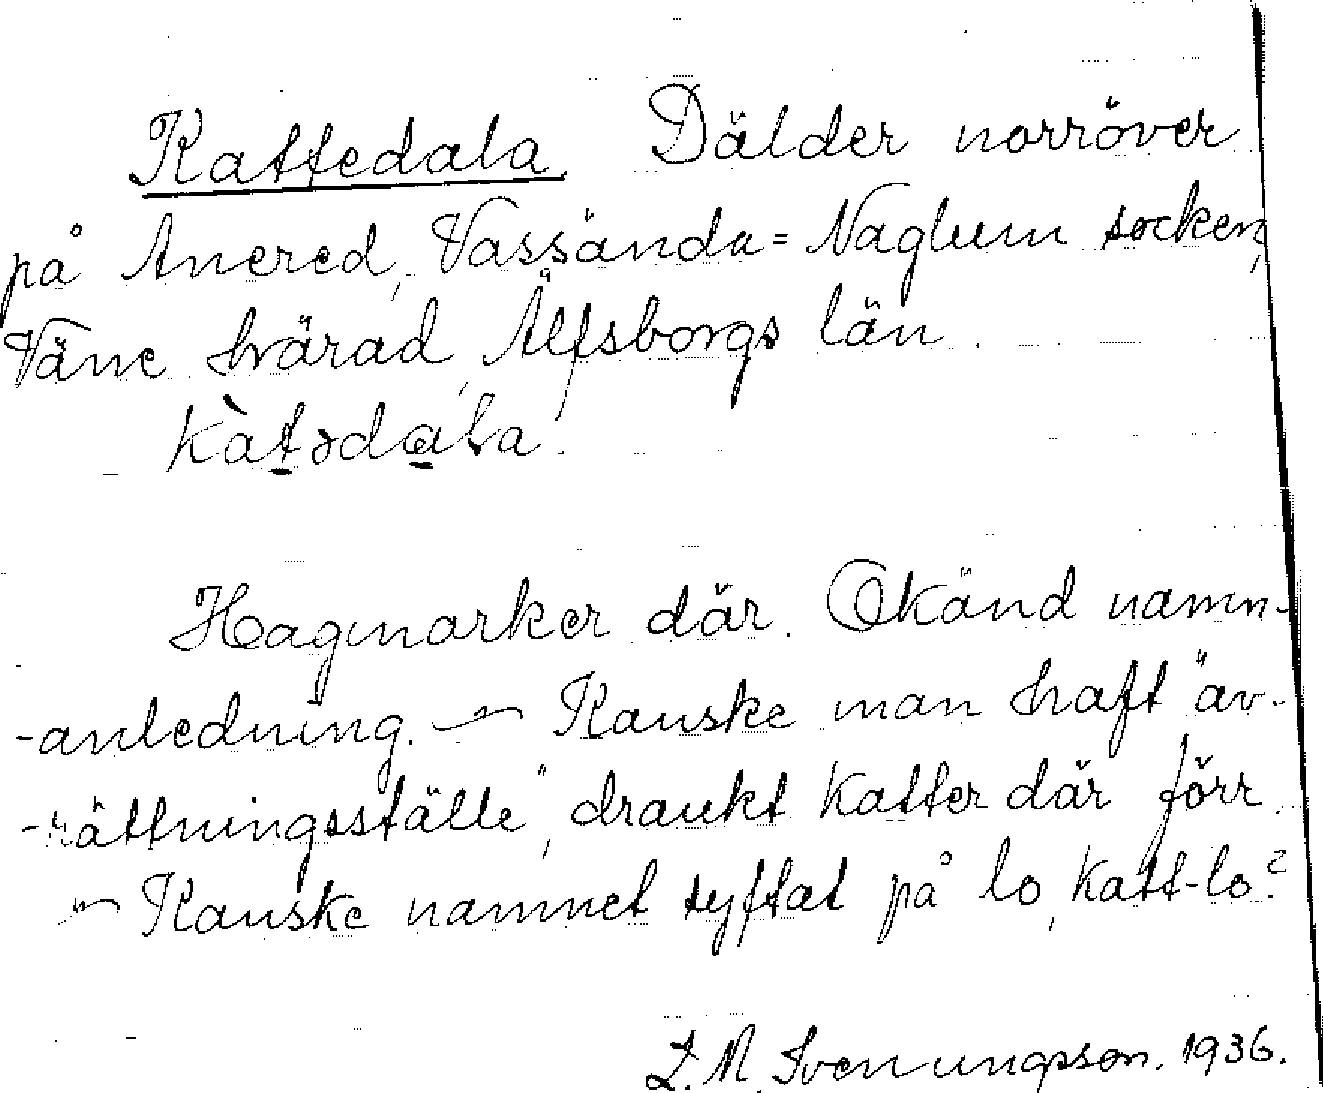 Kattedala. Dälder norröver
på Anered, Vassända=Naglum socken,
Väne härad, Älfsborgs län.
kàtədaɭa.
Hagmarker där. Okänd namn-
-anledning. — Kanske man haft "av-
-rättningsställe", dränkt katter där förr.
— Kanske namnet syftat på lo, katt-lo?
L. M. Svenungsson. 1936.